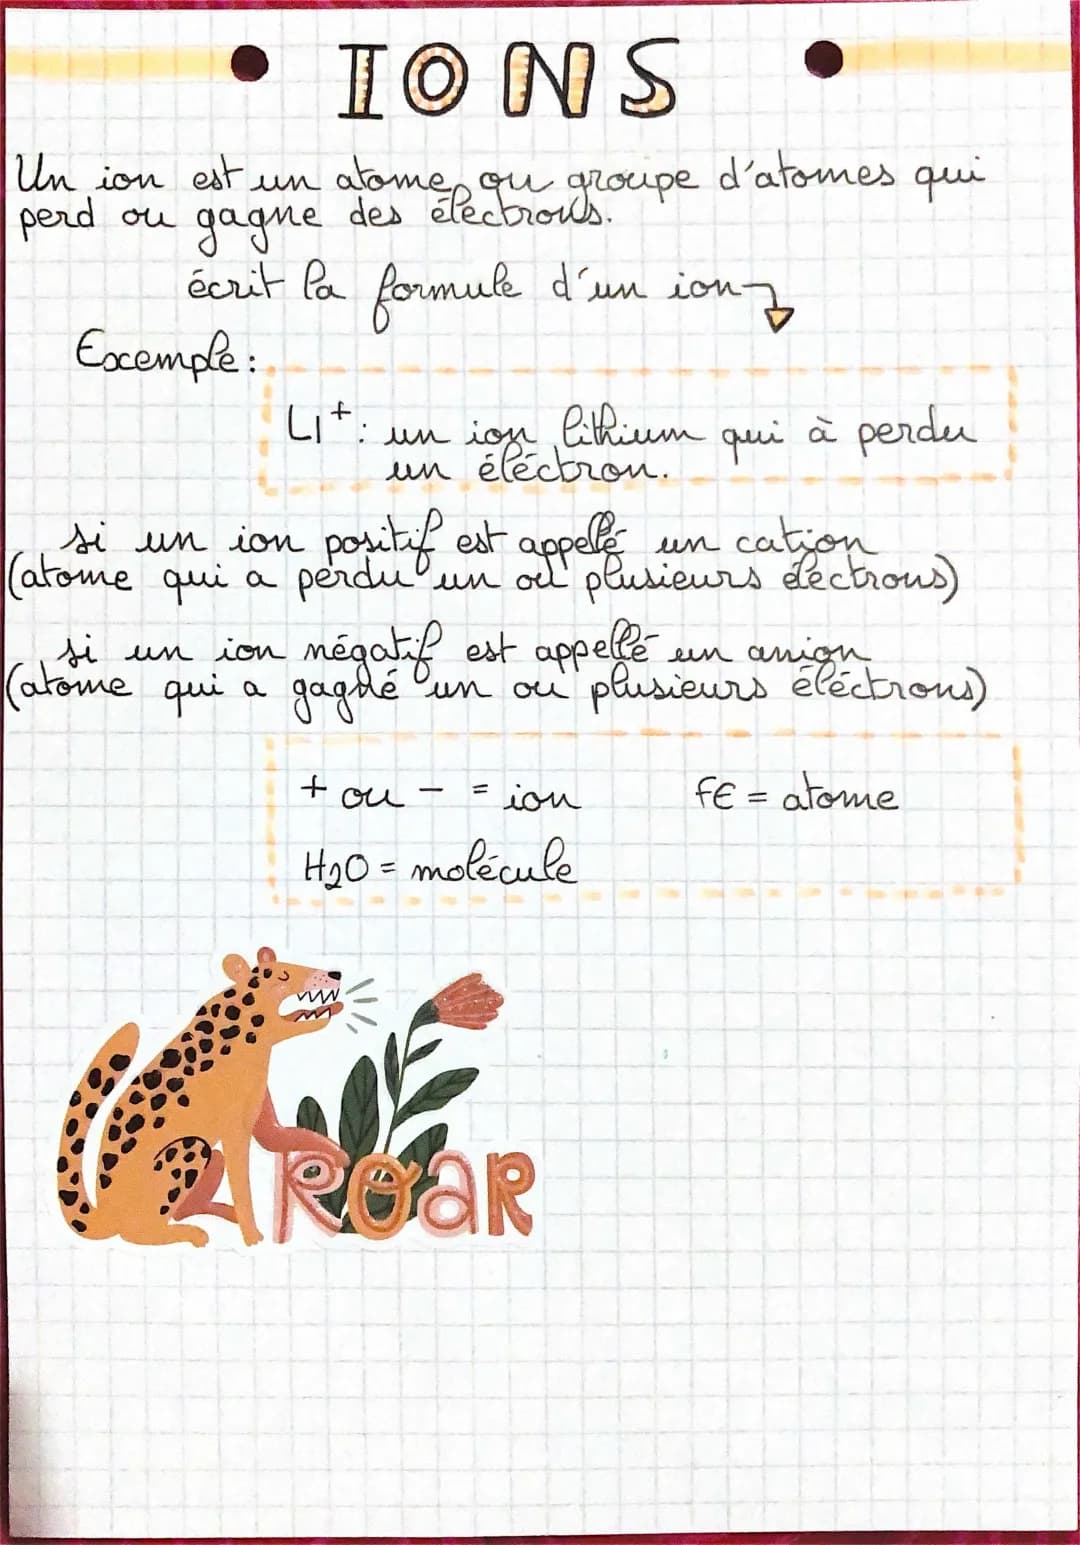 IONS
Un ion est un atome ou groupe d'atomes qui
perd ou gagne des électrons.
écrit la formule d'un ion
Exemple :
LI+ : un ion lithium qui à perdu
un éléctron.
si un ion positif est appellé un cation
(atome qui a perdu un ou plusieurs électrons)
si un ion négatif est appellé un anion
(atome qui a gagné un ou plusieurs éléctrons)
+ ou - = ion FE = atome
H2O = molécule
ROaR